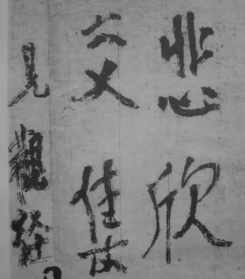 悲欣
交集
見觀經